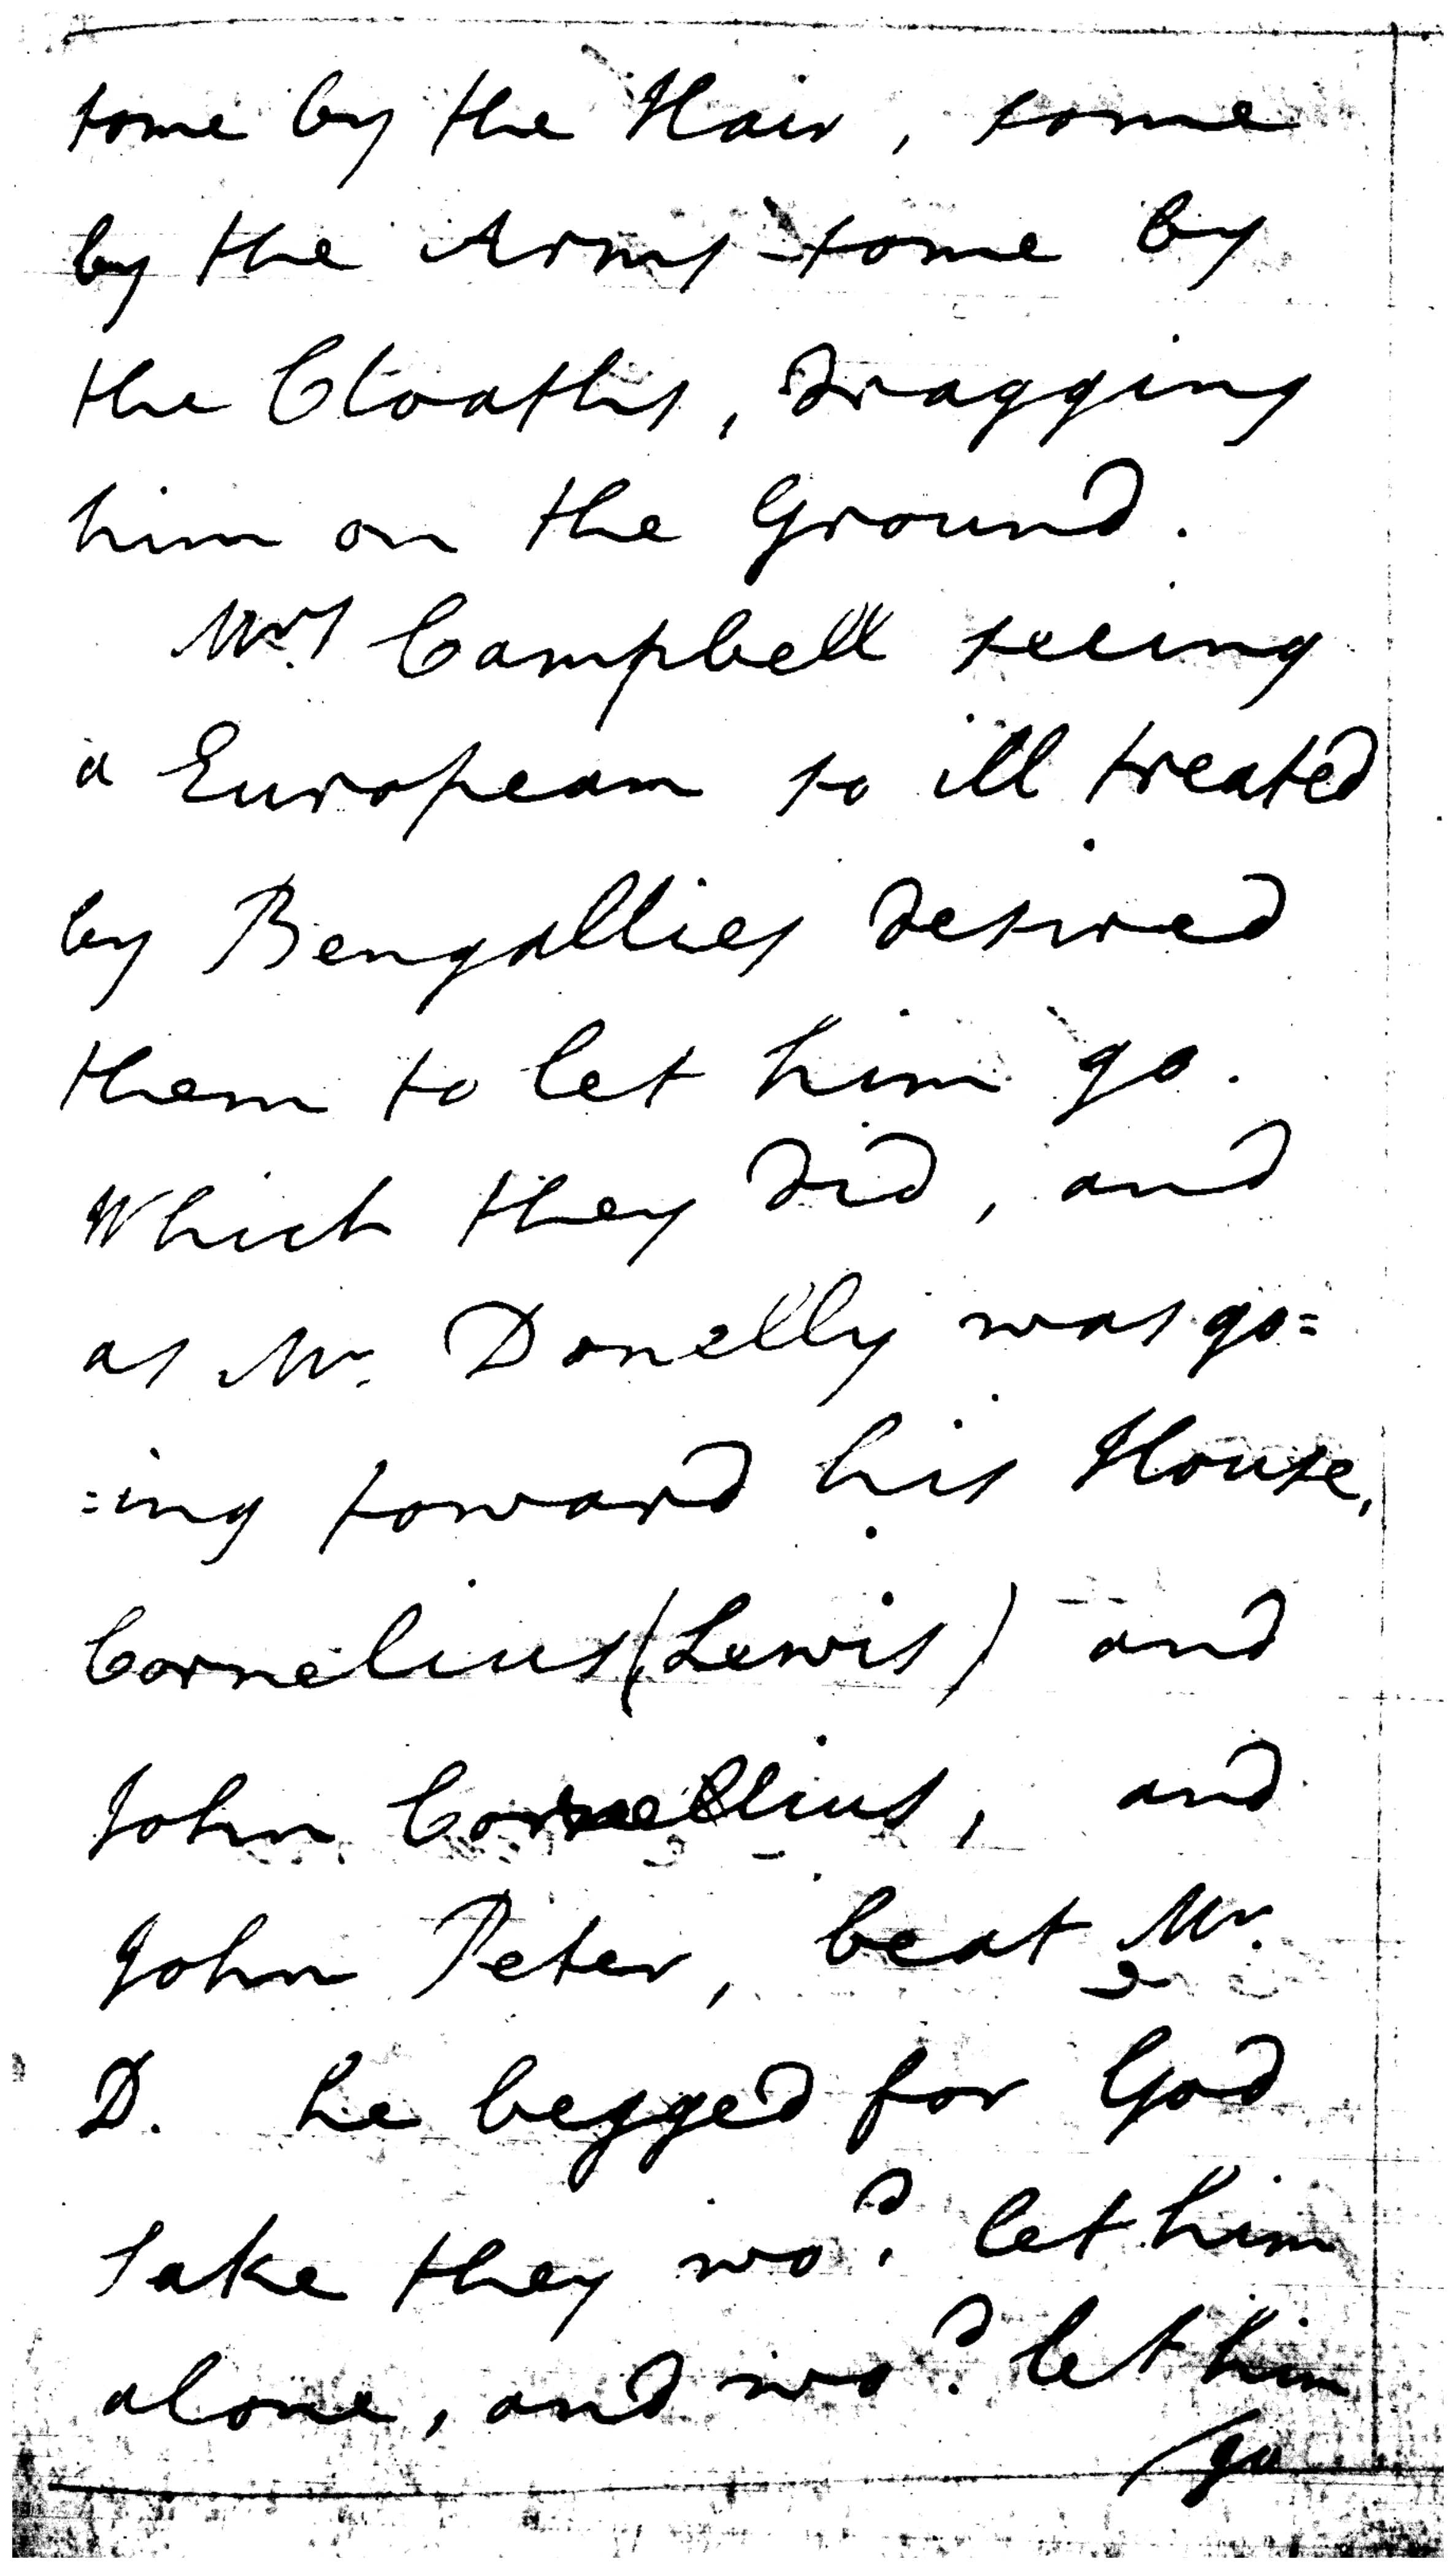 some by the Hair, some
by the Arms some by
the Cloaths, dragging
him on the Ground.
Mrs. Campbell seeing
a European so ill treated
by Bengallies desired
them to let him go.
Which they did, and
as Mr. Donelly was go=
=ing toward his House,
Cornelius (Lewis) and
John Cornellius, and
John Peter, beat Mr.
D. he begged for God
sake they wod. let him
alone, and wod. let him
go